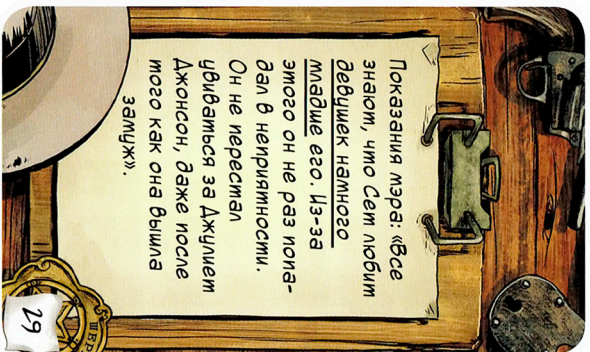 Показания мэра: «Все
знают, что Сет любит
девушек намного
младше его. Из-за
этого он не раз попа-
дал в неприятности.
Он не перестал
увиваться за Джулиет
Джонсон, даже после
того как она вышла
замуж».
ШЕР
29